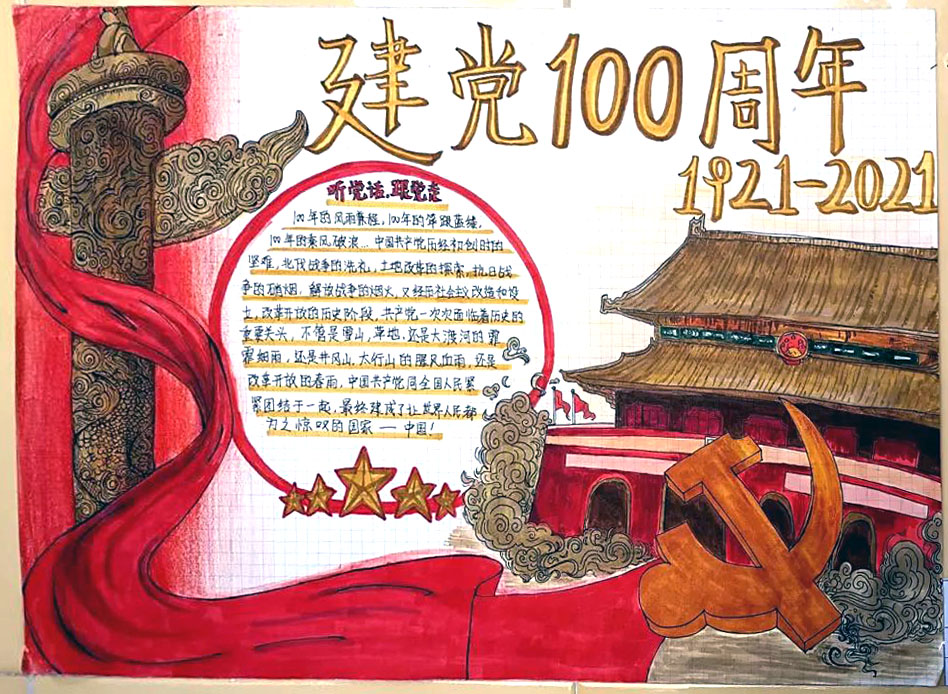 建党100周年
1921-2021
听党话.跟党走
100年的风雨兼程，100年的筚路蓝缕，
100年的乘风破浪…中国共产党历经初创时的
坚难，北伐战争的洗礼，土地改革的探索，抗日战
争的硝烟，解放战争的烟火，又经历社会主义改造和设
立，改革开放的历史阶段，共产党一次次面临着历史的
重要关头，不管是雪山，草地，还是大渡河的霏
霏细雨，还是井冈山，太行山的腥风血雨，还是
改革开放的春雨，中国共产党同全国人民紧
紧团结于一起，最终建成了让世界人民都
为之惊叹的国家一中国！